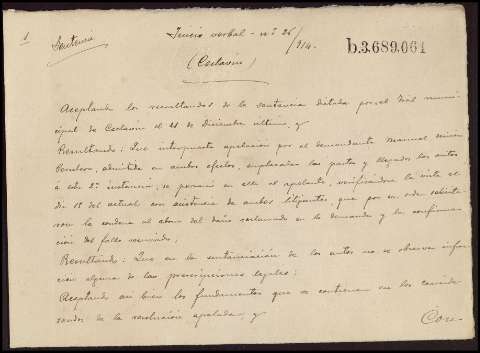 1
Sentencia
Juicio verbal - nº 26/914.
b.3.689.061
(Ceclavin)
Aceptando los resultandos de la sentencia dictada por el Trial muni-
cipal de Ceclavin el 11 de Diciembre último, y
Resultando: Que interpuesta apelación por el demandante Manuel
admitida en ambos efectos, emplazadas las partes y llegados los autos
á esta 2ª instancia, se personó en ella el apelante, verificándose la vista el
dia 1º del actual con asistencia de ambos litigantes, que por su orden solicita-
ron la condena al abono del daño reclamado en la demanda y la confirma-
ción del fallo recurrido;
Resultando: Que en la sustanciación de los autos no se observa infrac-
ción alguna de las prescripciones legales:
Aceptando asi bien los fundamentos que se contienen en los conside-
randos de la resolución apelada, y
Con-